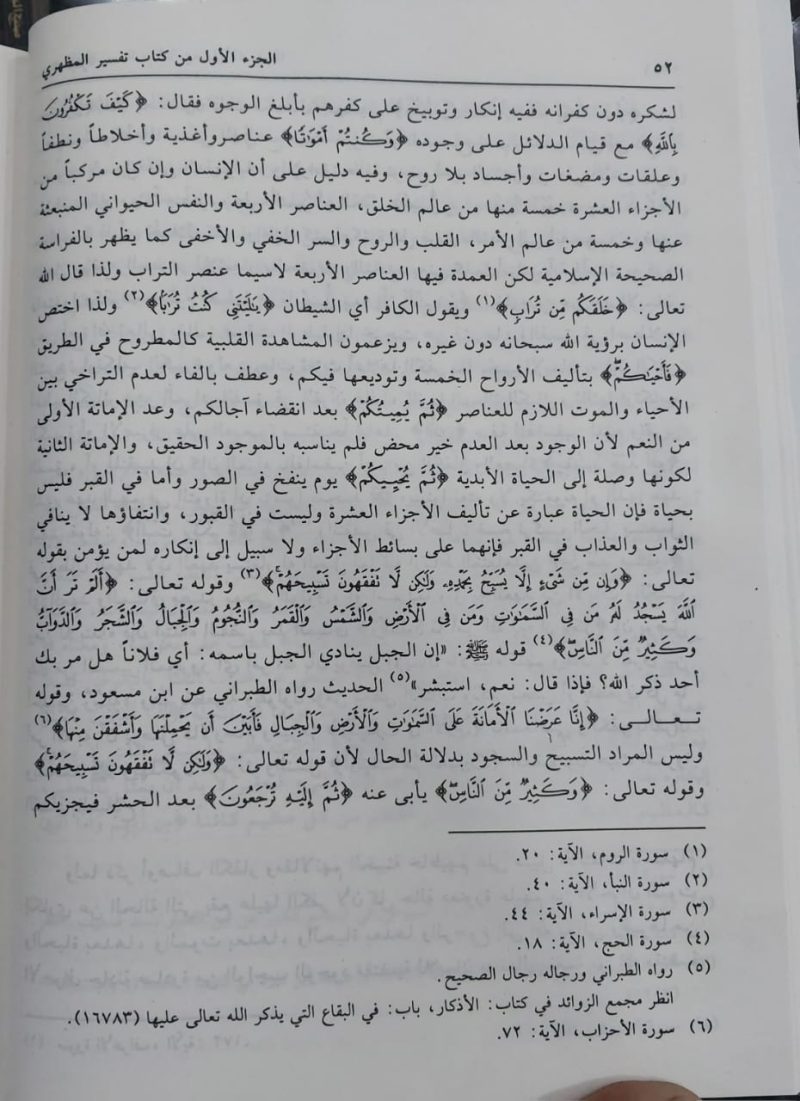 ٥٢ الجزء الأول من كتاب تفسير المظهري
لشكره دون كفرانه ففيه إنكار وتوبيخ على كفرهم بأبلغ الوجوه فقال: ﴿كَيْفَ تَكْفُرُونَ
بِاللَّهِ﴾ مع قيام الدلائل على وجوده ﴿وَكُنتُمْ أَمْوَاتًا﴾ عناصر وأغذية وأخلاطاً ونطفاً
وعلقات ومضغات وأجساد بلا روح، وفيه دليل على أن الإنسان وإن كان مركباً من
الأجزاء العشرة خمسة منها من عالم الخلق، العناصر الأربعة والنفس الحيواني المنبعثة
عنها وخمسة من عالم الأمر، القلب والروح والسر الخفي والأخفى كما يظهر بالفراسة
الصحيحة الإسلامية لكن العمدة فيها العناصر الأربعة لاسيما عنصر التراب ولذا قال الله
تعالى: ﴿خَلَقَكُم مِّن تُرَابٍ﴾(١) ويقول الكافر أي الشيطان ﴿يَلَيْتَنِى كُنتُ تُرَٰبًا﴾(٢) ولذا اختص
الإنسان برؤية الله سبحانه دون غيره، ويزعمون المشاهدة القلبية كالمطروح في الطريق
﴿فَأَحْيَٰكُمْ﴾ بتأليف الأرواح الخمسة وتوديعها فيكم، وعطف بالفاء لعدم التراخي بين
الأحياء والموت اللازم للعناصر ﴿ثُمَّ يُمِيتُكُمْ﴾ بعد انقضاء آجالكم، وعد الإماتة الأولى
من النعم لأن الوجود بعد العدم خير محض فلم يناسبه بالموجود الحقيق، والإماتة الثانية
لكونها وصلة إلى الحياة الأبدية ﴿ثُمَّ يُحْيِيكُمْ﴾ يوم ينفخ في الصور وأما في القبر فليس
بحياة فإن الحياة عبارة عن تأليف الأجزاء العشرة وليست في القبور، وانتفاؤها لا ينافي
الثواب والعذاب في القبر فإنهما على بسائط الأجزاء ولا سبيل إلى إنكاره لمن يؤمن بقوله
تعالى: ﴿وَإِن مِّن شَىْءٍ إِلَّا يُسَبِّحُ بِحَمْدِهِۦ وَلَٰكِن لَّا تَفْقَهُونَ تَسْبِيحَهُمْ﴾(٣) وقوله تعالى: ﴿أَلَمْ تَرَ أَنَّ
اللَّهَ يَسْجُدُ لَهُۥ مَن فِى السَّمَٰوَٰتِ وَمَن فِى الْأَرْضِ وَالشَّمْسُ وَالْقَمَرُ وَالنُّجُومُ وَالْجِبَالُ وَالشَّجَرُ وَالدَّوَآبُّ
وَكَثِيرٌ مِّنَ النَّاسِ﴾(٤) قوله ﷺ: «إن الجبل ينادي الجبل باسمه: أي فلاناً هل مر بك
أحد ذكر الله؟ فإذا قال: نعم، استبشر»(٥) الحديث رواه الطبراني عن ابن مسعود، وقوله
تعالى: ﴿إِنَّا عَرَضْنَا الْأَمَانَةَ عَلَى السَّمَٰوَٰتِ وَالْأَرْضِ وَالْجِبَالِ فَأَبَيْنَ أَن يَحْمِلْنَهَا وَأَشْفَقْنَ مِنْهَا﴾(٦)
وليس المراد التسبيح والسجود بدلالة الحال لأن قوله تعالى: ﴿وَلَٰكِن لَّا تَفْقَهُونَ تَسْبِيحَهُمْ﴾
وقوله تعالى: ﴿وَكَثِيرٌ مِّنَ النَّاسِ﴾ يأبى عنه ﴿ثُمَّ إِلَيْهِ تُرْجَعُونَ﴾ بعد الحشر فيجزيكم
(١) سورة الروم، الآية: ٢٠.
(٢) سورة النبأ، الآية: ٤٠.
(٣) سورة الإسراء، الآية: ٤٤.
(٤) سورة الحج، الآية: ١٨.
(٥) رواه الطبراني ورجاله رجال الصحيح.
انظر مجمع الزوائد في كتاب: الأذكار، باب: في البقاع التي يذكر الله تعالى عليها (١٦٧٨٣).
(٦) سورة الأحزاب، الآية: ٧٢.